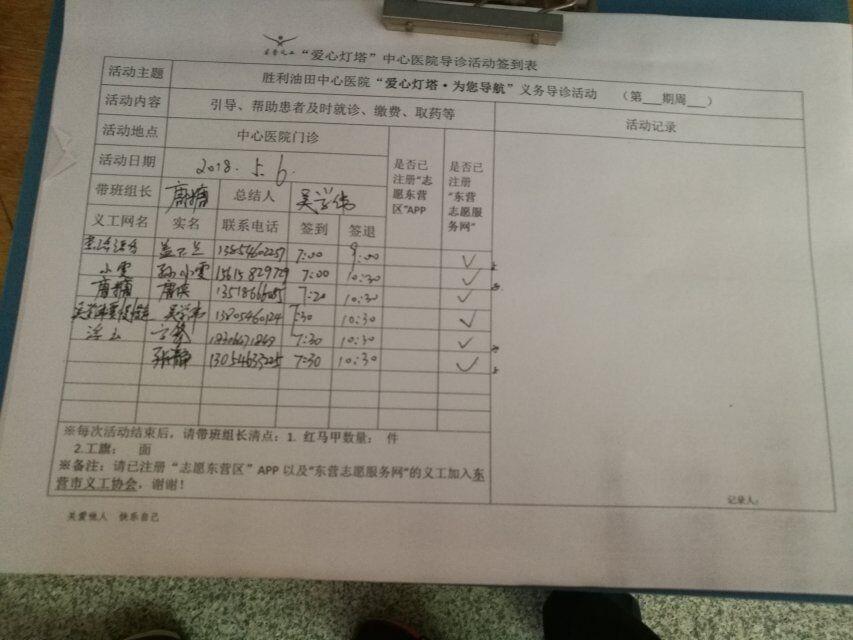 “爱心灯塔”中心医院导诊活动签到表
活动主题 胜利油田中心医院“爱心灯塔·为您导航”义务导诊活动 （第___期周___）
活动内容 引导、帮助患者及时就诊、缴费、取药等 活动记录
活动地点 中心医院门诊 是否已注册“志愿东营区”APP 是否已注册“东营志愿服务网”
活动日期 2018.5.6.
带班组长 总结人 吴学伟
义工网名 实名 联系电话 签到 签退
7:00 9:00 ✓
小雯 孙小雯 15615829729 7:00 10:30 ✓
7:20 10:30 ✓
吴学伟 13805460124 7:30 10:30 ✓
7:30 10:30 ✓
张静 13054633225 7:30 10:30 ✓
※每次活动结束后，请带班组长清点：1. 红马甲数量： 件
2.工旗： 面
※备注：请已注册“志愿东营区”APP 以及“东营志愿服务网”的义工加入东
营市义工协会，谢谢！
记录人：
关爱他人 快乐自己